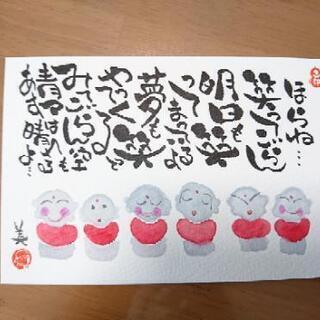 ほらね…
笑ってごらん
明日も笑
ってまってるよ
夢も笑
やってくる
みてごらん空
あす晴るよ…
美